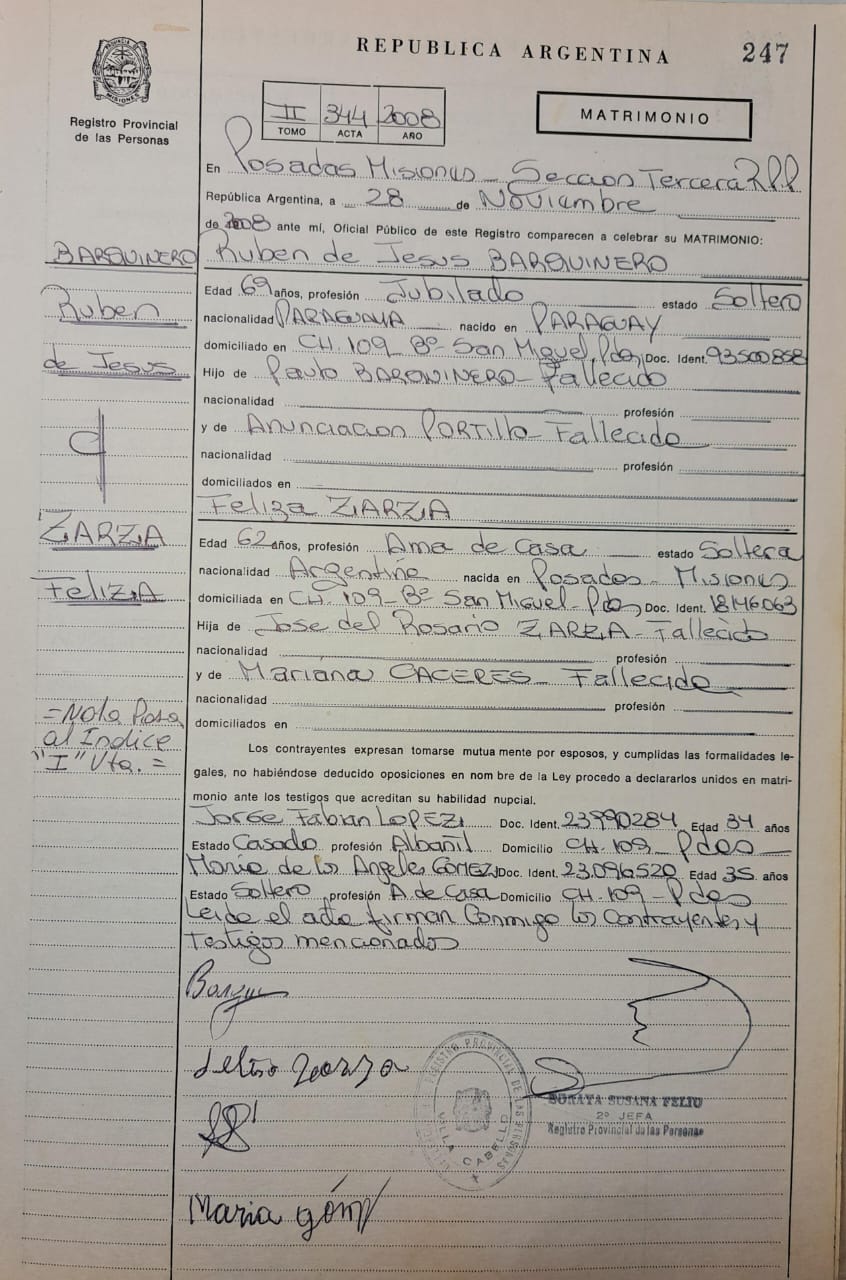 REPUBLICA ARGENTINA
247
PROVINCIA DE MISIONES
Registro Provincial
de las Personas
II 344 2008
TOMO ACTA AÑO
MATRIMONIO
En Posadas Misiones - Seccion Tercera R.P.P
República Argentina, a 28 de Noviembre
de 2008 ante mí, Oficial Público de este Registro comparecen a celebrar su MATRIMONIO:
BARQUINERO
Ruben
de Jesus
Ruben de Jesus BARQUINERO
Edad 69 años, profesión Jubilado estado Soltero
nacionalidad PARAGUAYA nacido en PARAGUAY
domiciliado en CH. 109 - Bº San Miguel, Pdas, Doc. Ident. 93500858
Hijo de Paulo BARQUINERO - Fallecido
nacionalidad profesión
y de Anunciacion PORTILLO - Fallecido
nacionalidad profesión
domiciliados en
Feliza ZARZA
ZARZA
FELIZA
Edad 62 años, profesión Ama de Casa estado Soltera
nacionalidad Argentina nacida en Posadas - Misiones
domiciliada en CH. 109 - Bº San Miguel - Pdas, Doc. Ident. 18146063
Hija de Jose del Rosario ZARZA - Fallecido
nacionalidad profesión
y de Mariana CACERES - Fallecida
nacionalidad profesión
domiciliados en
=Nota Pasa
al Indice
"I" Vta. =
Los contrayentes expresan tomarse mutua mente por esposos, y cumplidas las formalidades le-
gales, no habiéndose deducido oposiciones en nom bre de la Ley procedo a declararlos unidos en matri-
monio ante los testigos que acreditan su habilidad nupcial.
Jorge Fabian LOPEZ, Doc. Ident. 23990284 Edad 34 años
Estado Casado profesión Albañil Domicilio CH. 109 - Pdas
Maria de los Angeles GOMEZ, Doc. Ident. 23.096520 Edad 35 años
Estado Soltero profesión A. de Casa Domicilio CH. 109 - Pdas
Leida el acta firman Conmigo los Contrayentes y
Testigos mencionados
Feliza Zarza
REGISTRO PROVINCIAL DE LAS PERSONAS
VILLA CABELLO
SORAYA SUSANA FELIU
2º JEFA
Registro Provincial de las Personas
Maria góm